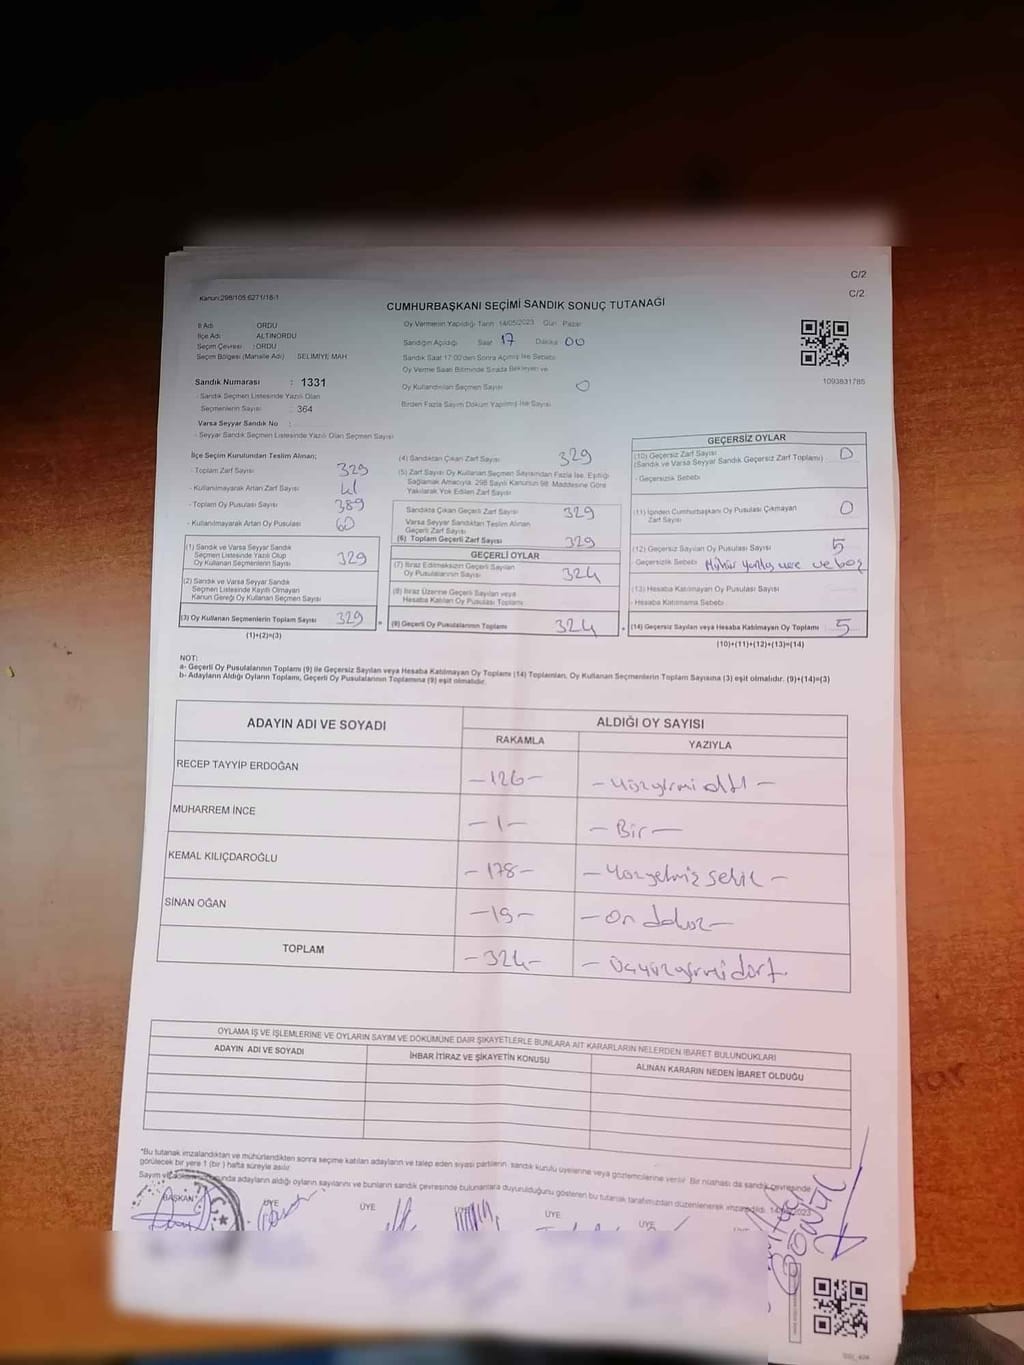 C/2
Kanun:298/105 6271/18-1
C/2
CUMHURBAŞKANI SEÇİMİ SANDIK SONUÇ TUTANAĞI
İl Adı : ORDU
İlçe Adı : ALTINORDU
Seçim Çevresi : ORDU
Seçim Bölgesi (Mahalle Adı) SELİMİYE MAH
Sandık Numarası : 1331
- Sandık Seçmen Listesinde Yazılı Olan
Seçmenlerin Sayısı : 364
Varsa Seyyar Sandık No :
- Seyyar Sandık Seçmen Listesinde Yazılı Olan Seçmen Sayısı
Oy Vermenin Yapıldığı Tarih: 14/05/2023 Gün: Pazar
Sandığın Açıldığı Saat 17 Dakika 00
Sandık Saat 17:00'den Sonra Açılmış İse Sebebi
Oy Verme Saati Bitiminde Sırada Bekleyen ve
Oy Kullandırılan Seçmen Sayısı 0
Birden Fazla Sayım Döküm Yapılmış İse Sayısı
1093831785
İlçe Seçim Kurulundan Teslim Alınan;
- Toplam Zarf Sayısı 329
- Kullanılmayarak Artan Zarf Sayısı
- Toplam Oy Pusulası Sayısı 389
- Kullanılmayarak Artan Oy Pusulası 60
(1) Sandık ve Varsa Seyyar Sandık
Seçmen Listesinde Yazılı Olup
Oy Kullanan Seçmenlerin Sayısı 329
(2) Sandık ve Varsa Seyyar Sandık
Seçmen Listesinde Kayıtlı Olmayan
Kanun Gereği Oy Kullanan Seçmen Sayısı
(3) Oy Kullanan Seçmenlerin Toplam Sayısı 329 =
(1)+(2)=(3)
(4) Sandıktan Çıkan Zarf Sayısı 329
(5) Zarf Sayısı Oy Kullanan Seçmen Sayısından Fazla İse, Eşitliği
Sağlamak Amacıyla, 298 Sayılı Kanunun 98. Maddesine Göre
Yakılarak Yok Edilen Zarf Sayısı
Sandıkta Çıkan Geçerli Zarf Sayısı 329
Varsa Seyyar Sandıktan Teslim Alınan
Geçerli Zarf Sayısı
(6) Toplam Geçerli Zarf Sayısı 329
GEÇERLİ OYLAR
(7) İtiraz Edilmeksizin Geçerli Sayılan
Oy Pusulalarının Sayısı 324
(8) İtiraz Üzerine Geçerli Sayılan veya
Hesaba Katılan Oy Pusulası Toplamı
(9) Geçerli Oy Pusulalarının Toplamı 324 +
GEÇERSİZ OYLAR
(10) Geçersiz Zarf Sayısı 0
(Sandık ve Varsa Seyyar Sandık Geçersiz Zarf Toplamı)
- Geçersizlik Sebebi
(11) İçinden Cumhurbaşkanı Oy Pusulası Çıkmayan 0
Zarf Sayısı
(12) Geçersiz Sayılan Oy Pusulası Sayısı 5
- Geçersizlik Sebebi Mühür yanlış yere ve boş
(13) Hesaba Katılmayan Oy Pusulası Sayısı
- Hesaba Katılmama Sebebi
(14) Geçersiz Sayılan veya Hesaba Katılmayan Oy Toplamı 5
(10)+(11)+(12)+(13)=(14)
NOT:
a- Geçerli Oy Pusulalarının Toplamı (9) ile Geçersiz Sayılan veya Hesaba Katılmayan Oy Toplamı (14) Toplamları, Oy Kullanan Seçmenlerin Toplam Sayısına (3) eşit olmalıdır. (9)+(14)=(3)
b- Adayların Aldığı Oyların Toplamı, Geçerli Oy Pusulalarının Toplamına (9) eşit olmalıdır.
ADAYIN ADI VE SOYADI ALDIĞI OY SAYISI
RAKAMLA YAZIYLA
RECEP TAYYİP ERDOĞAN -126- -Yüzyirmi altı-
MUHARREM İNCE -1- -Bir-
KEMAL KILIÇDAROĞLU -178- -Yüzyetmiş sekiz-
SİNAN OĞAN -19- -On dokuz-
TOPLAM -324- -Üçyüzyirmi dört-
OYLAMA İŞ VE İŞLEMLERİNE VE OYLARIN SAYIM VE DÖKÜMÜNE DAİR ŞİKAYETLERLE BUNLARA AİT KARARLARIN NELERDEN İBARET BULUNDUKLARI
ADAYIN ADI VE SOYADI İHBAR İTİRAZ VE ŞİKAYETİN KONUSU ALINAN KARARIN NEDEN İBARET OLDUĞU
*Bu tutanak imzalandıktan ve mühürlendikten sonra seçime katılan adayların ve talep eden siyasi partilerin, sandık kurulu üyelerine veya gözlemcilerine verilir. Bir nüshası da sandık çevresinde
görülecek bir yere 1 (bir) hafta süreyle asılır.
adayların aldığı oyların sayılarını ve bunların sandık çevresinde bulunanlara duyurulduğunu gösteren bu tutanak tarafımızdan düzenlenerek imza edildi.
BAŞKAN ÜYE ÜYE ÜYE ÜYE ÜYE
GÖNÜL